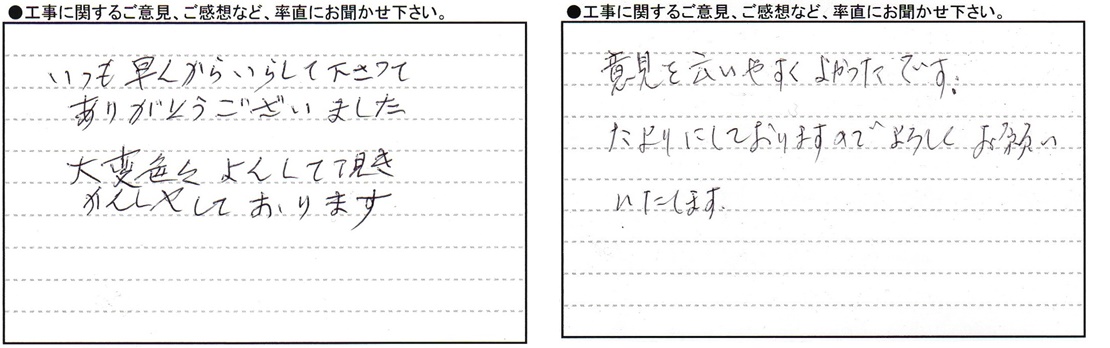 ●工事に関するご意見、ご感想など、率直にお聞かせ下さい。
いつも早くからいらして下さって
ありがとうございました
大変色々よくして頂き
かんしゃしております
●工事に関するご意見、ご感想など、率直にお聞かせ下さい。
意見を云いやすくよかったです。
たよりにしておりますのでよろしくお願い
いたします。